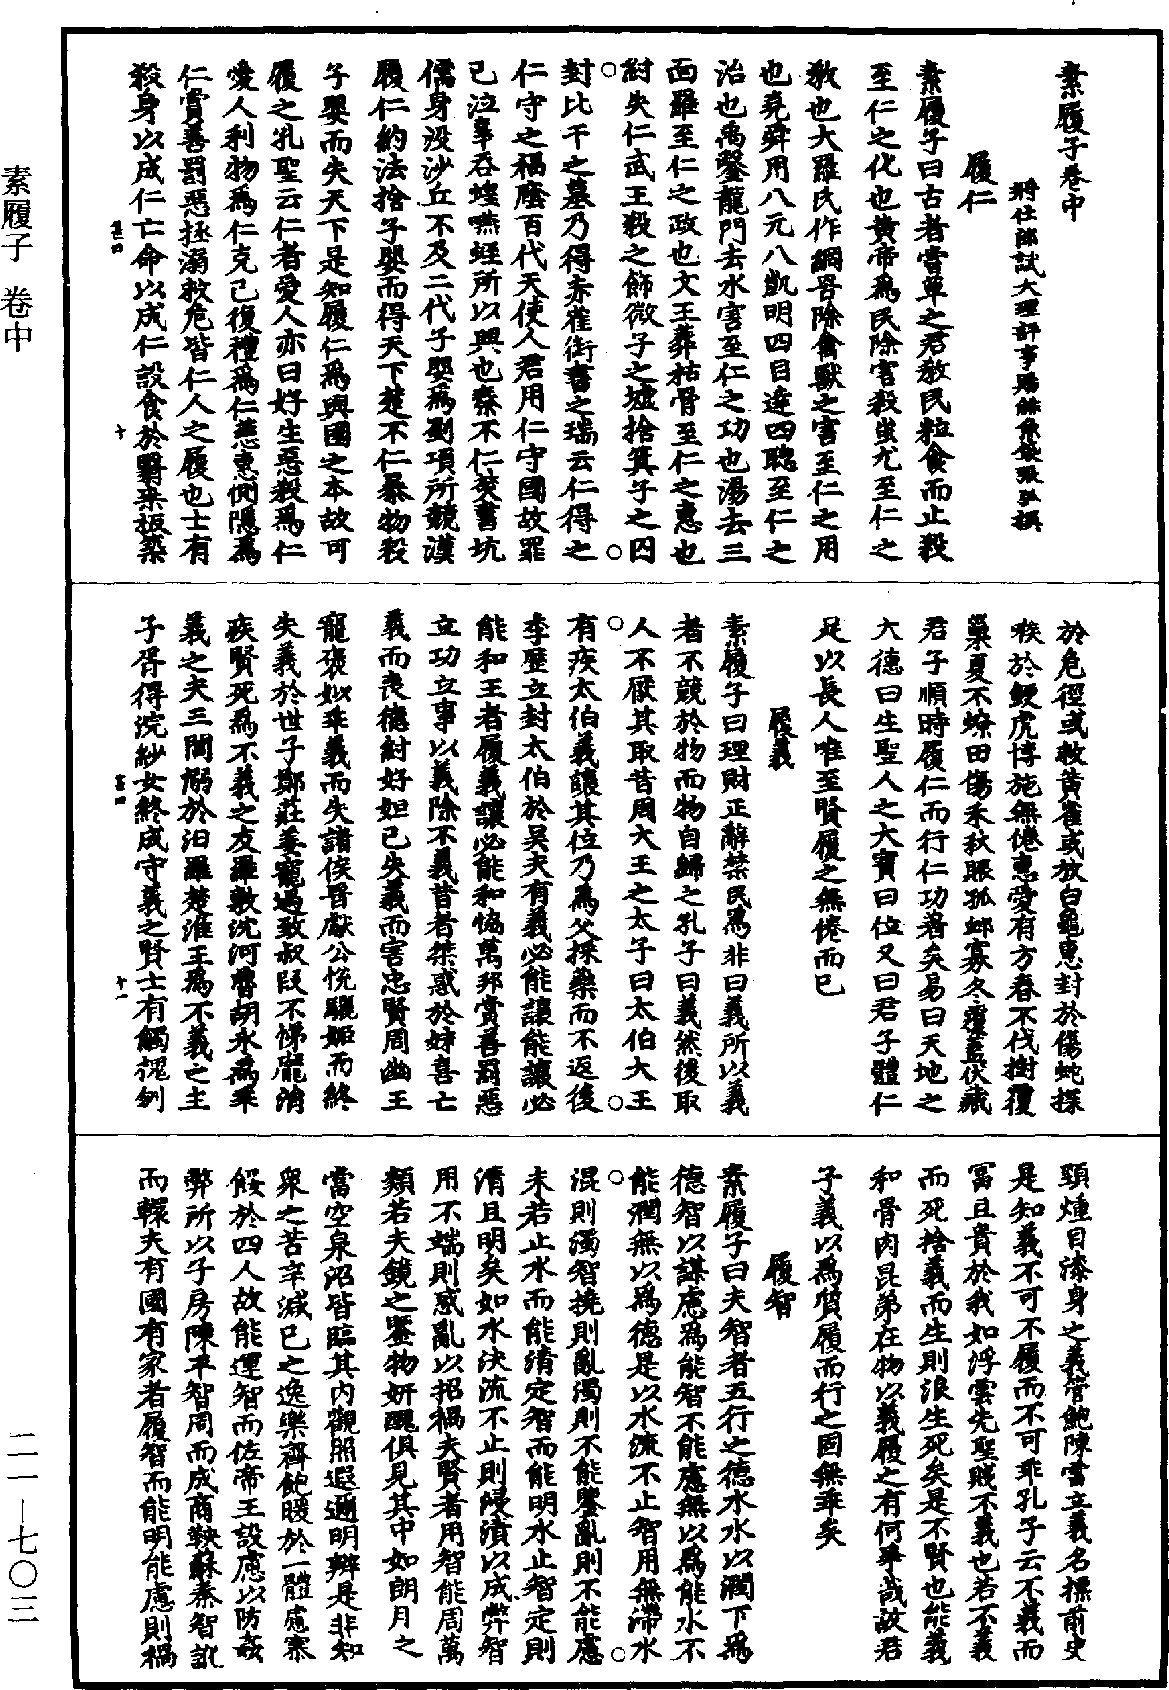 素履子卷中
將仕郎試大理評事賜緋魚袋張弧撰
履仁
素履子曰古者嘗草之君教民粒食而止殺
至仁之化也黃帝為民除害殺蚩尤至仁之
教也大羅氏作網罟除禽獸之害至仁之用
也堯舜用八元八凱明四目達四聰至仁之
治也禹鑿龍門去水害至仁之功也湯去三
面羅至仁之政也文王葬枯骨至仁之惠也
紂失仁武王殺之飾微子之墟捨箕子之囚
封比干之墓乃得赤雀銜書之瑞云仁得之
仁守之福廕百代天使人君用仁守國故罪
己泣辜吞蝗嚥蛭所以興也秦不仁焚書坑
儒身沒沙丘不及二代子嬰為劉項所競漢
履仁約法捨子嬰而得天下楚不仁暴物殺
子嬰而失天下是知履仁為興國之本故可
履之孔聖云仁者愛人亦曰好生惡殺為仁
愛人利物為仁克己復禮為仁慈惠惻隱為
仁賞善罰惡拯溺救危皆仁人之履也士有
殺身以成仁亡命以成仁設食於翳桑板築
於危徑或救黃雀或放白龜惠封於傷蛇探
喉於鯁虎博施無倦惠愛有方春不伐樹覆
巢夏不燎田傷禾秋賑孤卹寡冬覆蓋伏藏
君子順時履仁而行仁功著矣易曰天地之
大德曰生聖人之大寶曰位又曰君子體仁
足以長人唯至賢履之無倦而已
履義
素履子曰理財正辭禁民為非曰義所以義
者不競於物而物自歸之孔子曰義然後取
人不厭其取昔周大王之太子曰太伯大王
有疾太伯義讓其位乃為父採藥而不返後
季歷立封太伯於吳夫有義必能讓能讓必
能和王者履義讓必能和恊萬邦賞善罰惡
立功立事以義除不義昔者桀惑於妹喜亡
義而喪德紂好妲己失義而害忠賢周幽王
寵褒姒乖義而失諸侯晉獻公悅驪姬而終
失義於世子鄭莊姜寵過致叔段不悌龐涓
疾賢死為不義之友羅敷沈河魯胡永為乖
義之夫三閭溺於汨羅楚淮王為不義之主
子胥得浣紗女終成守義之賢士有觸槐刎
頸煙目漆身之義管鮑陳雷立義名標前史
是知義不可不履而不可乖孔子云不義而
富且貴於我如浮雲先聖賤不義也若不義
而死捨義而生則浪生死矣是不賢也能義
和骨肉昆弟在物以義履之有何爭哉故君
子義以為質履而行之固無乖矣
履智
素履子曰夫智者五行之德水水以潤下為
德智以謀慮為能智不能慮無以為能水不
能潤無以為德是以水流不止智用無滯水
混則濁智撓則亂濁則不能鑒亂則不能慮
未若止水而能清定智而能明水止智定則
清且明矣如水決流不止則隄潰以成弊智
用不端則惑亂以招禍夫賢者用智能周萬
類若夫鏡之鑒物妍醜俱見其中如朗月之
當空泉沼皆臨其內觀照遐邇明辯是非知
眾之苦辛減己之逸樂齊飽暖於一體慮寒
餒於四人故能運智而佐帝王設慮以防姦
弊所以子房陳平智周而成商鞅蘇秦智訛
而轘夫有國有家者履智而能明能慮則禍
甚四
十
甚四
十一
素履子 卷中
二一—七〇三